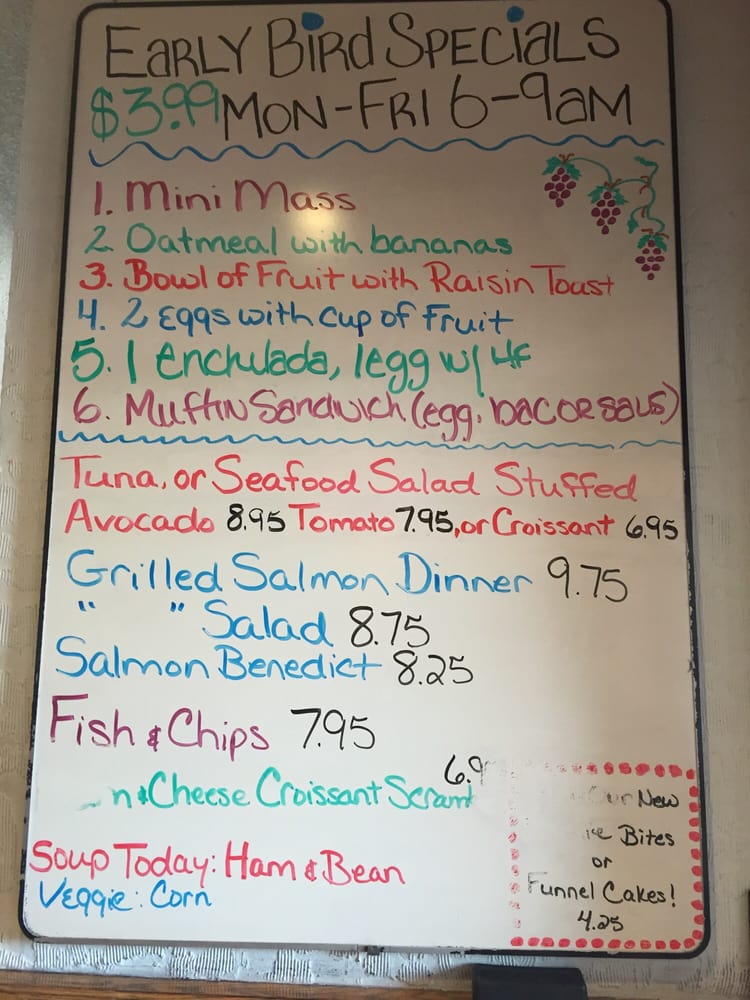 EARLY BIRD SPECIALS
$3.99 MON-FRI 6-9AM
1. Mini Mass
2. Oatmeal with bananas
3. Bowl of Fruit with Raisin Toast
4. 2 Eggs with cup of Fruit
5. 1 enchilada, 1egg w/ HF
6. Muffin Sandwich (egg, bac or saus)
Tuna, or Seafood Salad Stuffed
Avocado 8.95 Tomato 7.95, or Croissant 6.95
Grilled Salmon Dinner 9.75
" " Salad 8.75
Salmon Benedict 8.25
Fish & Chips 7.95
&Cheese Croissant
Soup Today: Ham & Bean
Veggie: Corn
Our New
Bites
or
Funnel Cakes!
4.25